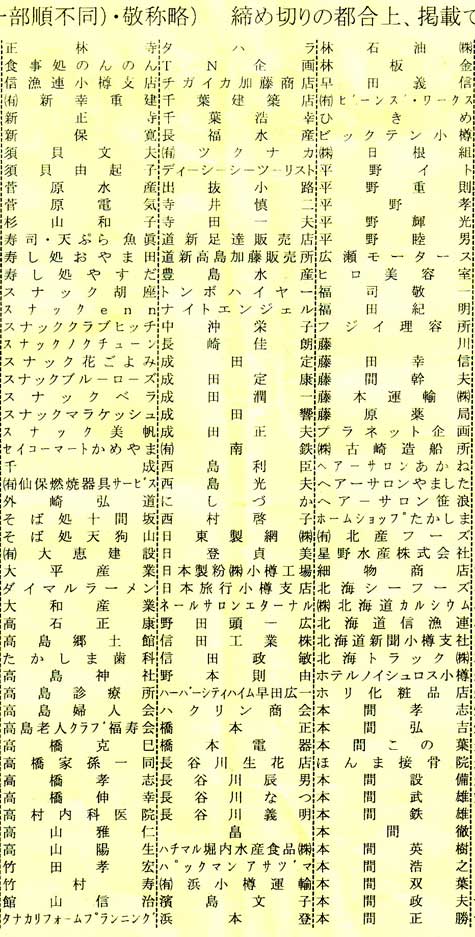 一部順不同)・敬称略)　締め切りの都合上、掲載で
正林寺
食事処のんのん
信漁連小樽支店
㈲新幸重建
新正寺
新保寛
須貝文夫
須貝由起子
菅原水産
菅原電気
杉山和子
寿司・天ぷら魚眞
寿し処おやま田
寿し処やすだ
スナック胡座
スナックenn
スナッククラブヒッチ
スナックノクチューン
スナック花ごよみ
スナックブルーローズ
スナックベラ
スナックマラケッシュ
スナック美帆
セイコーマートかめやま
千成
㈲仙保燃焼器具サービス
外崎弘道
そば処十間坂
そば処天狗山
㈲大恵建設
大平産業
ダイマルラーメン
大和産業
高石正康
高島郷土館
たかしま歯科
高島神社
高島診療所
高島婦人会
高島老人クラブ福寿会
高橋克巳
高橋家係一同
高橋孝志
高橋伸幸
高村内科医院
高山雅仁
高山陽生
竹田孝宏
竹村寿
館山信治
タナカリフォームプランニング
タハラ
TN企画
チガイカ加藤商店
千葉建築店
千葉浩幸
長福水産
㈲ツクナカ
ディーシーシーツーリスト
出抜小路
寺井慎二
寺田一夫
道新足達販売店
道新高島加藤販売所
豊島水産
トンボハイヤー
ナイトエンジェル
中沖栄子
長崎佳朗
成田定
成田定康
成田潤一
成田響
成田正夫
㈲南鉄
西島利臣
西島光夫
にしづか
西村啓子
日東製網㈱
日登貞美
日本製粉㈱小樽工場
日本旅行小樽支店
ネールサロンエターナル
野田頭一広
信田工業㈱
信田政敏
野本則由
ハーバーシティハイム早田広一
ハクリン商会
橋本正
橋本電器
長谷川生花店
長谷川辰男
長谷川なつ
長谷川義明
畠
ハチマル堀内水産食品㈱
パックマンアサヅマ
㈲浜小樽運輸
濱島文子
浜本登
林石油㈱
林板金
早田義信
㈲ビーンズ・ワークス
ひきめ
ビックテン小樽
㈱日根組
平野イト
平野重則
平野孝
平野輝光
平野睦男
広瀬モータース
ヒロ美容室
福司敬一
福田紀明
フジイ理容所
藤川
藤田幸信
藤間幹夫
藤本運輸㈱
藤原薬局
プラネット企画
㈱古崎造船所
ヘアーサロンあかね
ヘアーサロンやました
ヘアーサロン笹浪
ホームショップたかしま
㈲北産フーズ
星野水産株式会社
細物商店
北海シーフーズ
㈱北海道カルシウム
北海道信漁連
北海道新聞小樽支社
北海トラック㈱
ホテルノイシュロス小樽
ホリ化粧品店
本間孝志
本間弘吉
本間この葉
ほんま接骨院
本間設備
本間武雄
本間鉄雄
本間徹
本間英樹
本間浩之
本間双葉
本間政夫
本間正勝